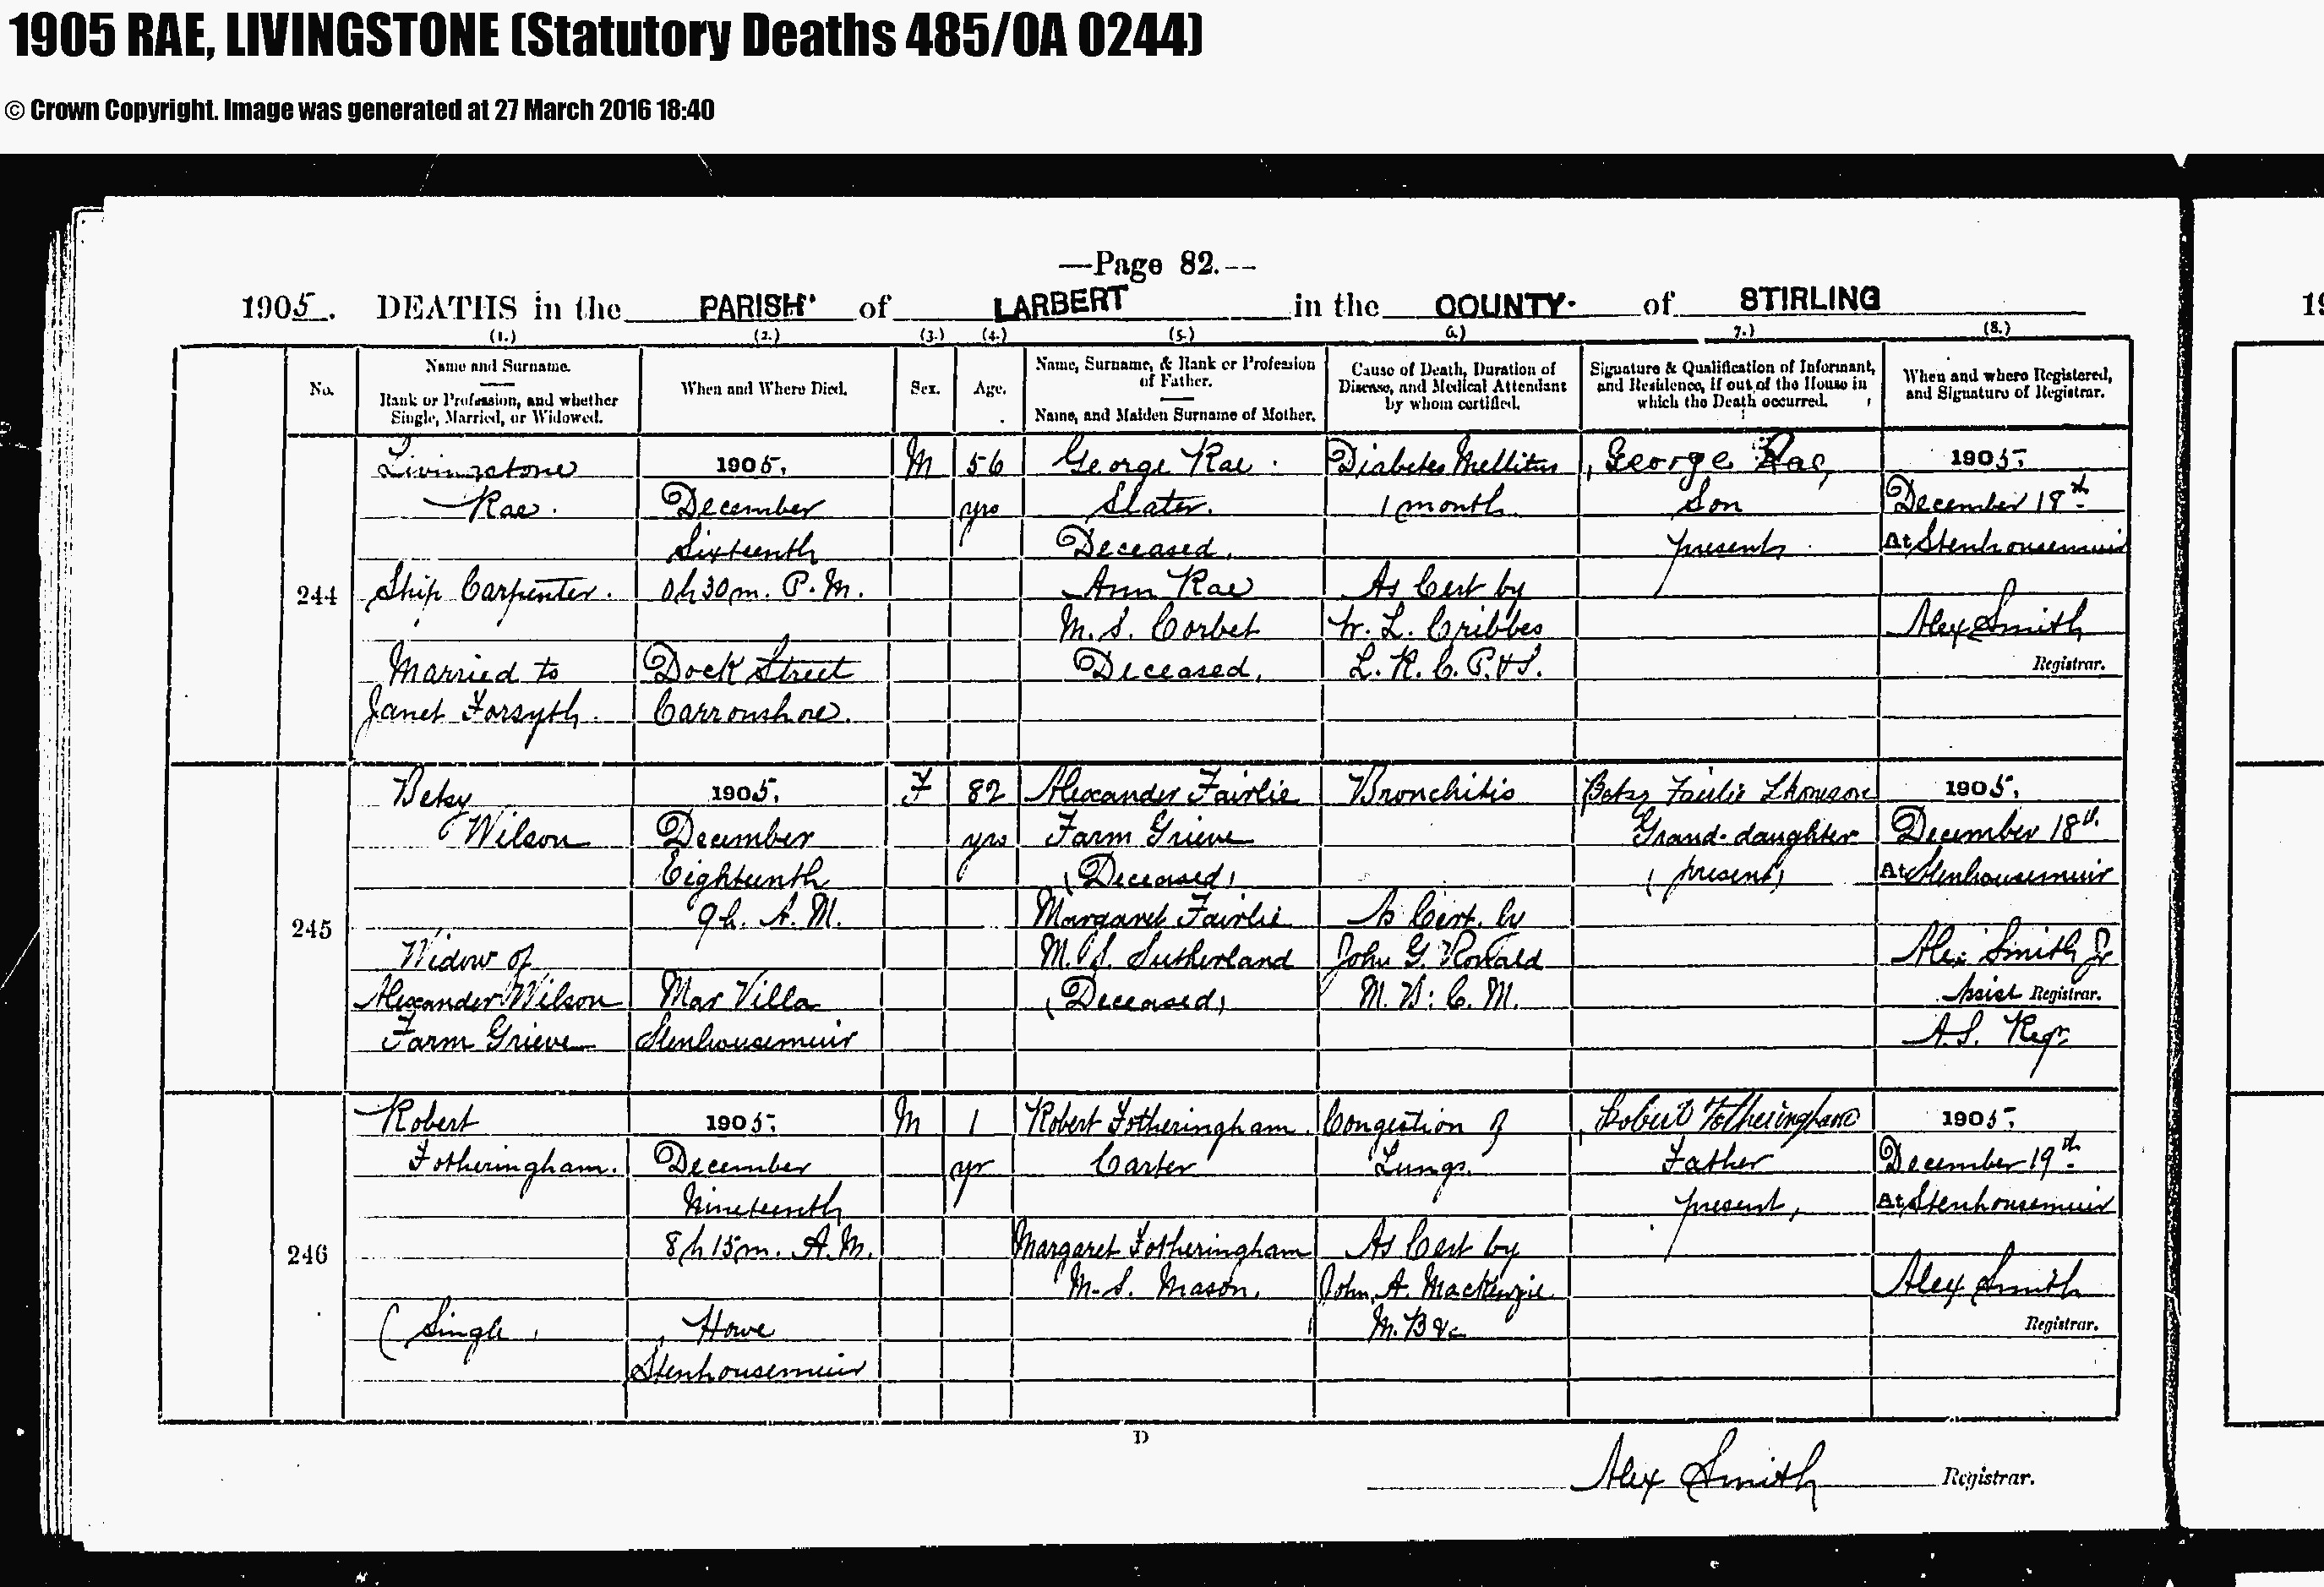 1905 RAE, LIVINGSTONE (Statutory Deaths 485/0A 0244)
© Crown Copyright. Image was generated at 27 March 2016 18:40
—Page 82.—
1905. DEATHS in the PARISH of LARBERT in the COUNTY of STIRLING
(1.) (2.) (3.) (4.) (5.) 6.) 7.) (8.)
No.
Name and Surname.
Rank or Profession, and whether
Single, Married, or Widowed.
When and Where Died.
Sex.
Age.
Name, Surname, & Rank or Profession
of Father.
Name, and Maiden Surname of Mother.
Cause of Death, Duration of
Disease, and Medical Attendant
by whom certified.
Signature & Qualification of Informant,
and Residence, if out of the House in
which the Death occurred.
When and where Registered,
and Signature of Registrar.
244
Livingstone
Rae.
Ship Carpenter.
Married to
Janet Forsyth.
1905.
December
Sixteenth
0h 30m. P.M.
Dock Street
Carronshore.
M
56
yrs
George Rae
Slater.
Deceased,
Ann Rae
M.S. Corbet
Deceased,
Diabetes Mellitus
1 month.
As Cert by
W. L. Cribbes
L.R.C.P.&S.
George Rae,
Son
present
1905.
December 18th
At Stenhousemuir
Alex Smith
Registrar.
245
Betsy
Wilson
Widow of
Alexander Wilson
Farm Grieve
1905.
December
Eighteenth
9h. A.M.
Mar Villa
Stenhousemuir
F
82
yrs
Alexander Fairlie
Farm Grieve
(Deceased)
Margaret Fairlie
M.S. Sutherland
(Deceased)
Bronchitis
As Cert. by
John G. Ronald
M.B: C.M.
Betsy Fairlie Thomson
Grand-daughter
(present)
1905.
December 18th
At Stenhousemuir
Alex Smith Jr
Assist Registrar.
A.S. Regr.
246
Robert
Fotheringham.
(Single,
1905.
December
Nineteenth
8h 15m. A.M.
Howe
Stenhousemuir
M
1
yr
Robert Fotheringham.
Carter
Margaret Fotheringham
M.S. Mason.
Congestion of
Lungs.
As Cert by
John A. Mackenzie
M.B &c
Robert Fotheringham
Father
present,
1905.
December 19th
At Stenhousemuir
Alex Smith
Registrar.
D
Alex Smith Registrar.